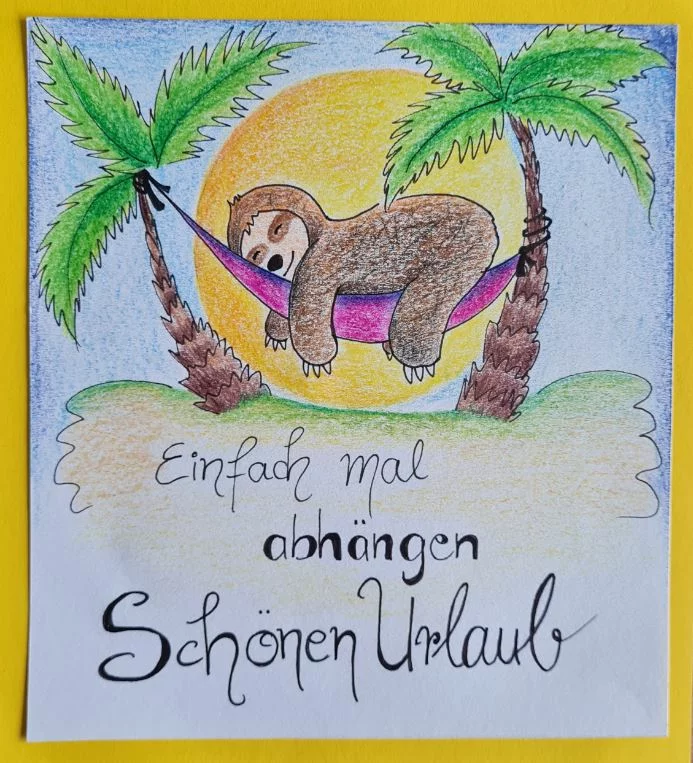 Einfach mal
abhängen
Schönen Urlaub